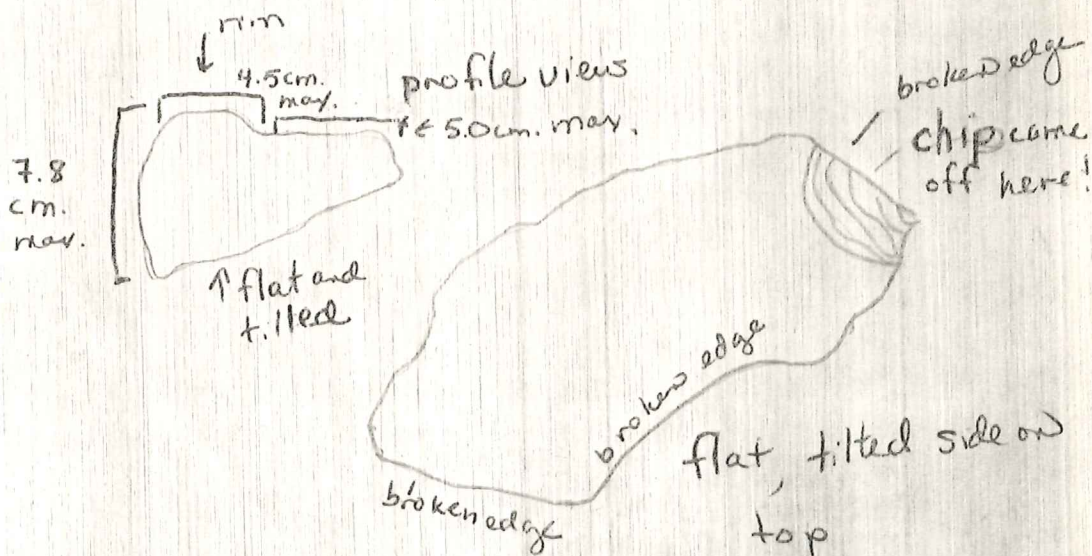 rim
↓
4.5cm.
max.
profile views
5.0cm. max.
7.8
cm.
max.
↑ flat and
tilted
broken edge
chip came
off here!
broken edge
broken edge
flat, tilted side on
top